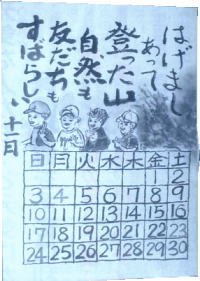 はげまし
あって
登った山
自然も
友だちも
すばらしい
十一月
日 月 火 水 木 金 土
1 2
3 4 5 6 7 8 9
10 11 12 13 14 15 16
17 18 19 20 21 22 23
24 25 26 27 28 29 30